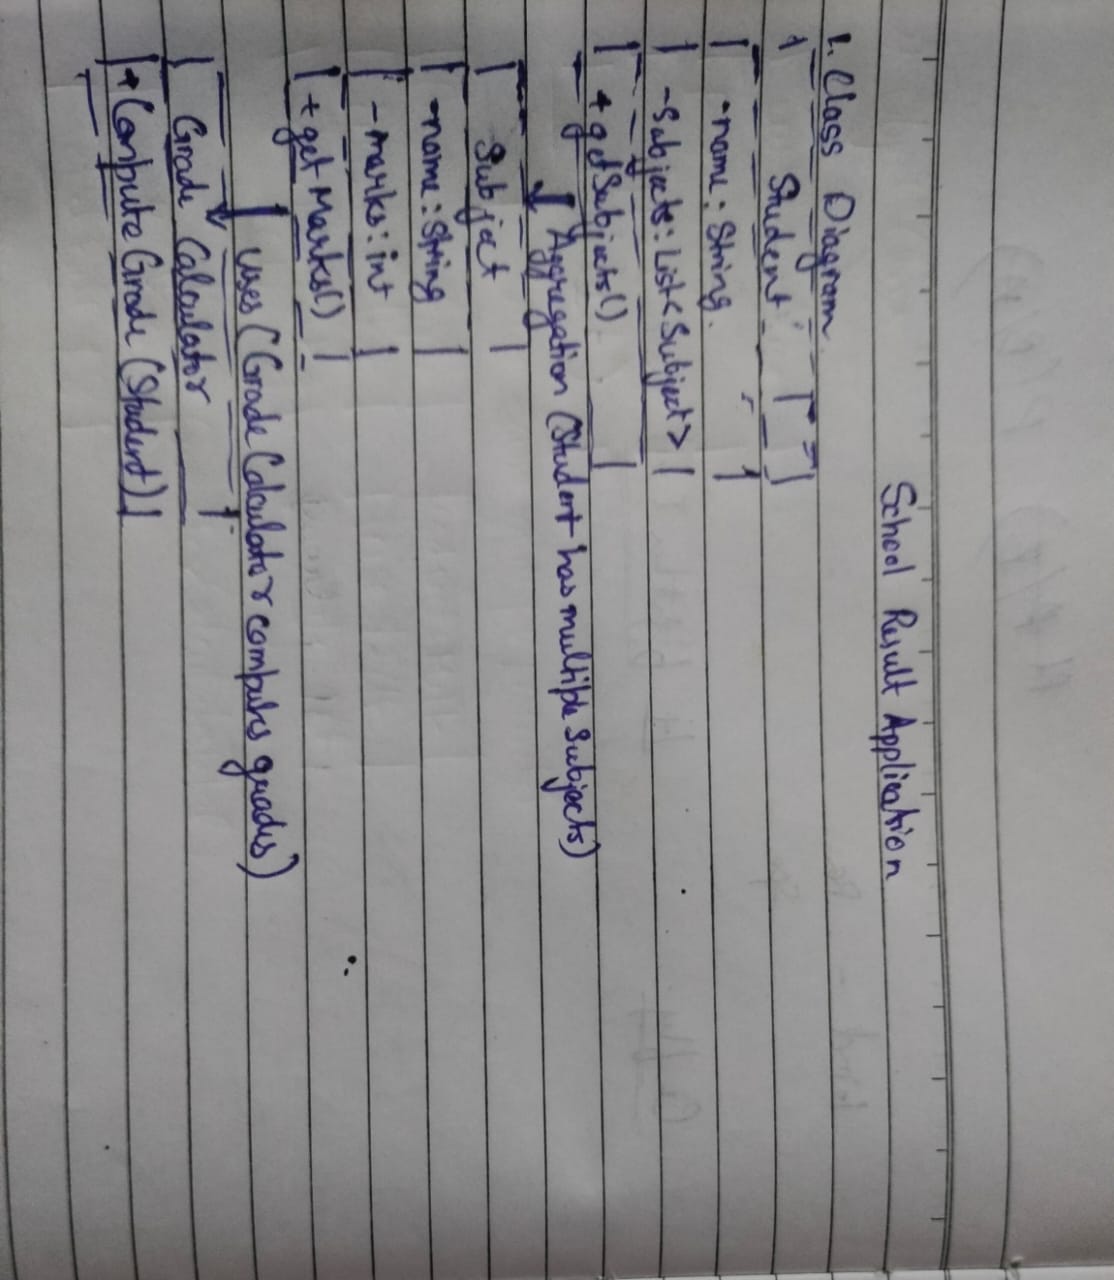 School Result Application
1. Class Diagram
Student
- name : String
- Subjects : List<Subject>
+ getSubjects()
Aggregation (Student has multiple Subjects)
Subject
- name : String
- marks : int
+ get Marks()
uses (Grade Calculator computes grades)
Grade Calculator
+ Compute Grade (Student)